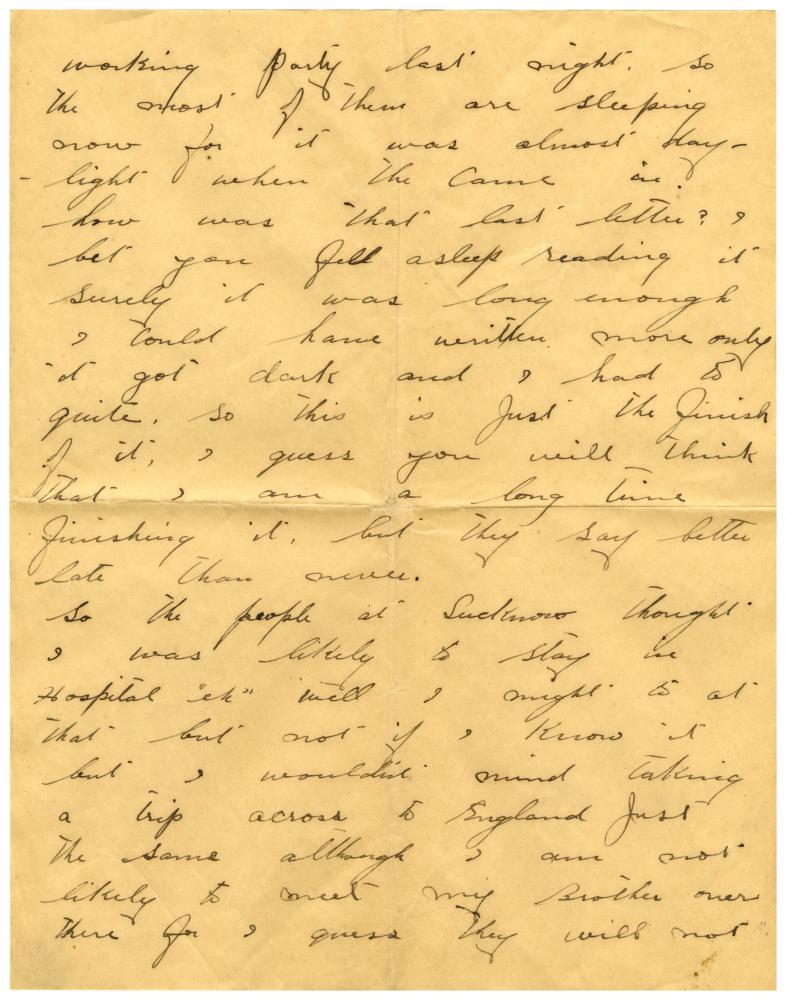 working party last night. so
the most of them are sleeping
now for it was almost day-
- light when the came in.
how was that last letter? I
bet you fell asleep reading it
surely it was long enough
I could have written more only
it got dark and I had to
quite. so this is Just the finish
of it, I guess you will think
that I am a long time
finishing it, but they say better
late than never.
So the people at Lucknow thought
I was likely to stay in
Hospital "eh" well I might to at
that but not if I Know it
but I wouldnt mind taking
a trip across to England Just
the same although I am not
likely to meet my Brother over
there for I guess they will not